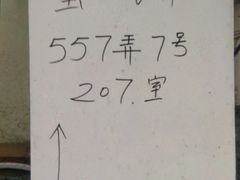 557弄7号
207.室